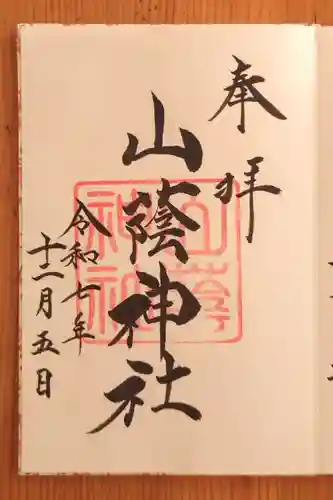 奉拝
山蔭神社
令和七年
十二月五日